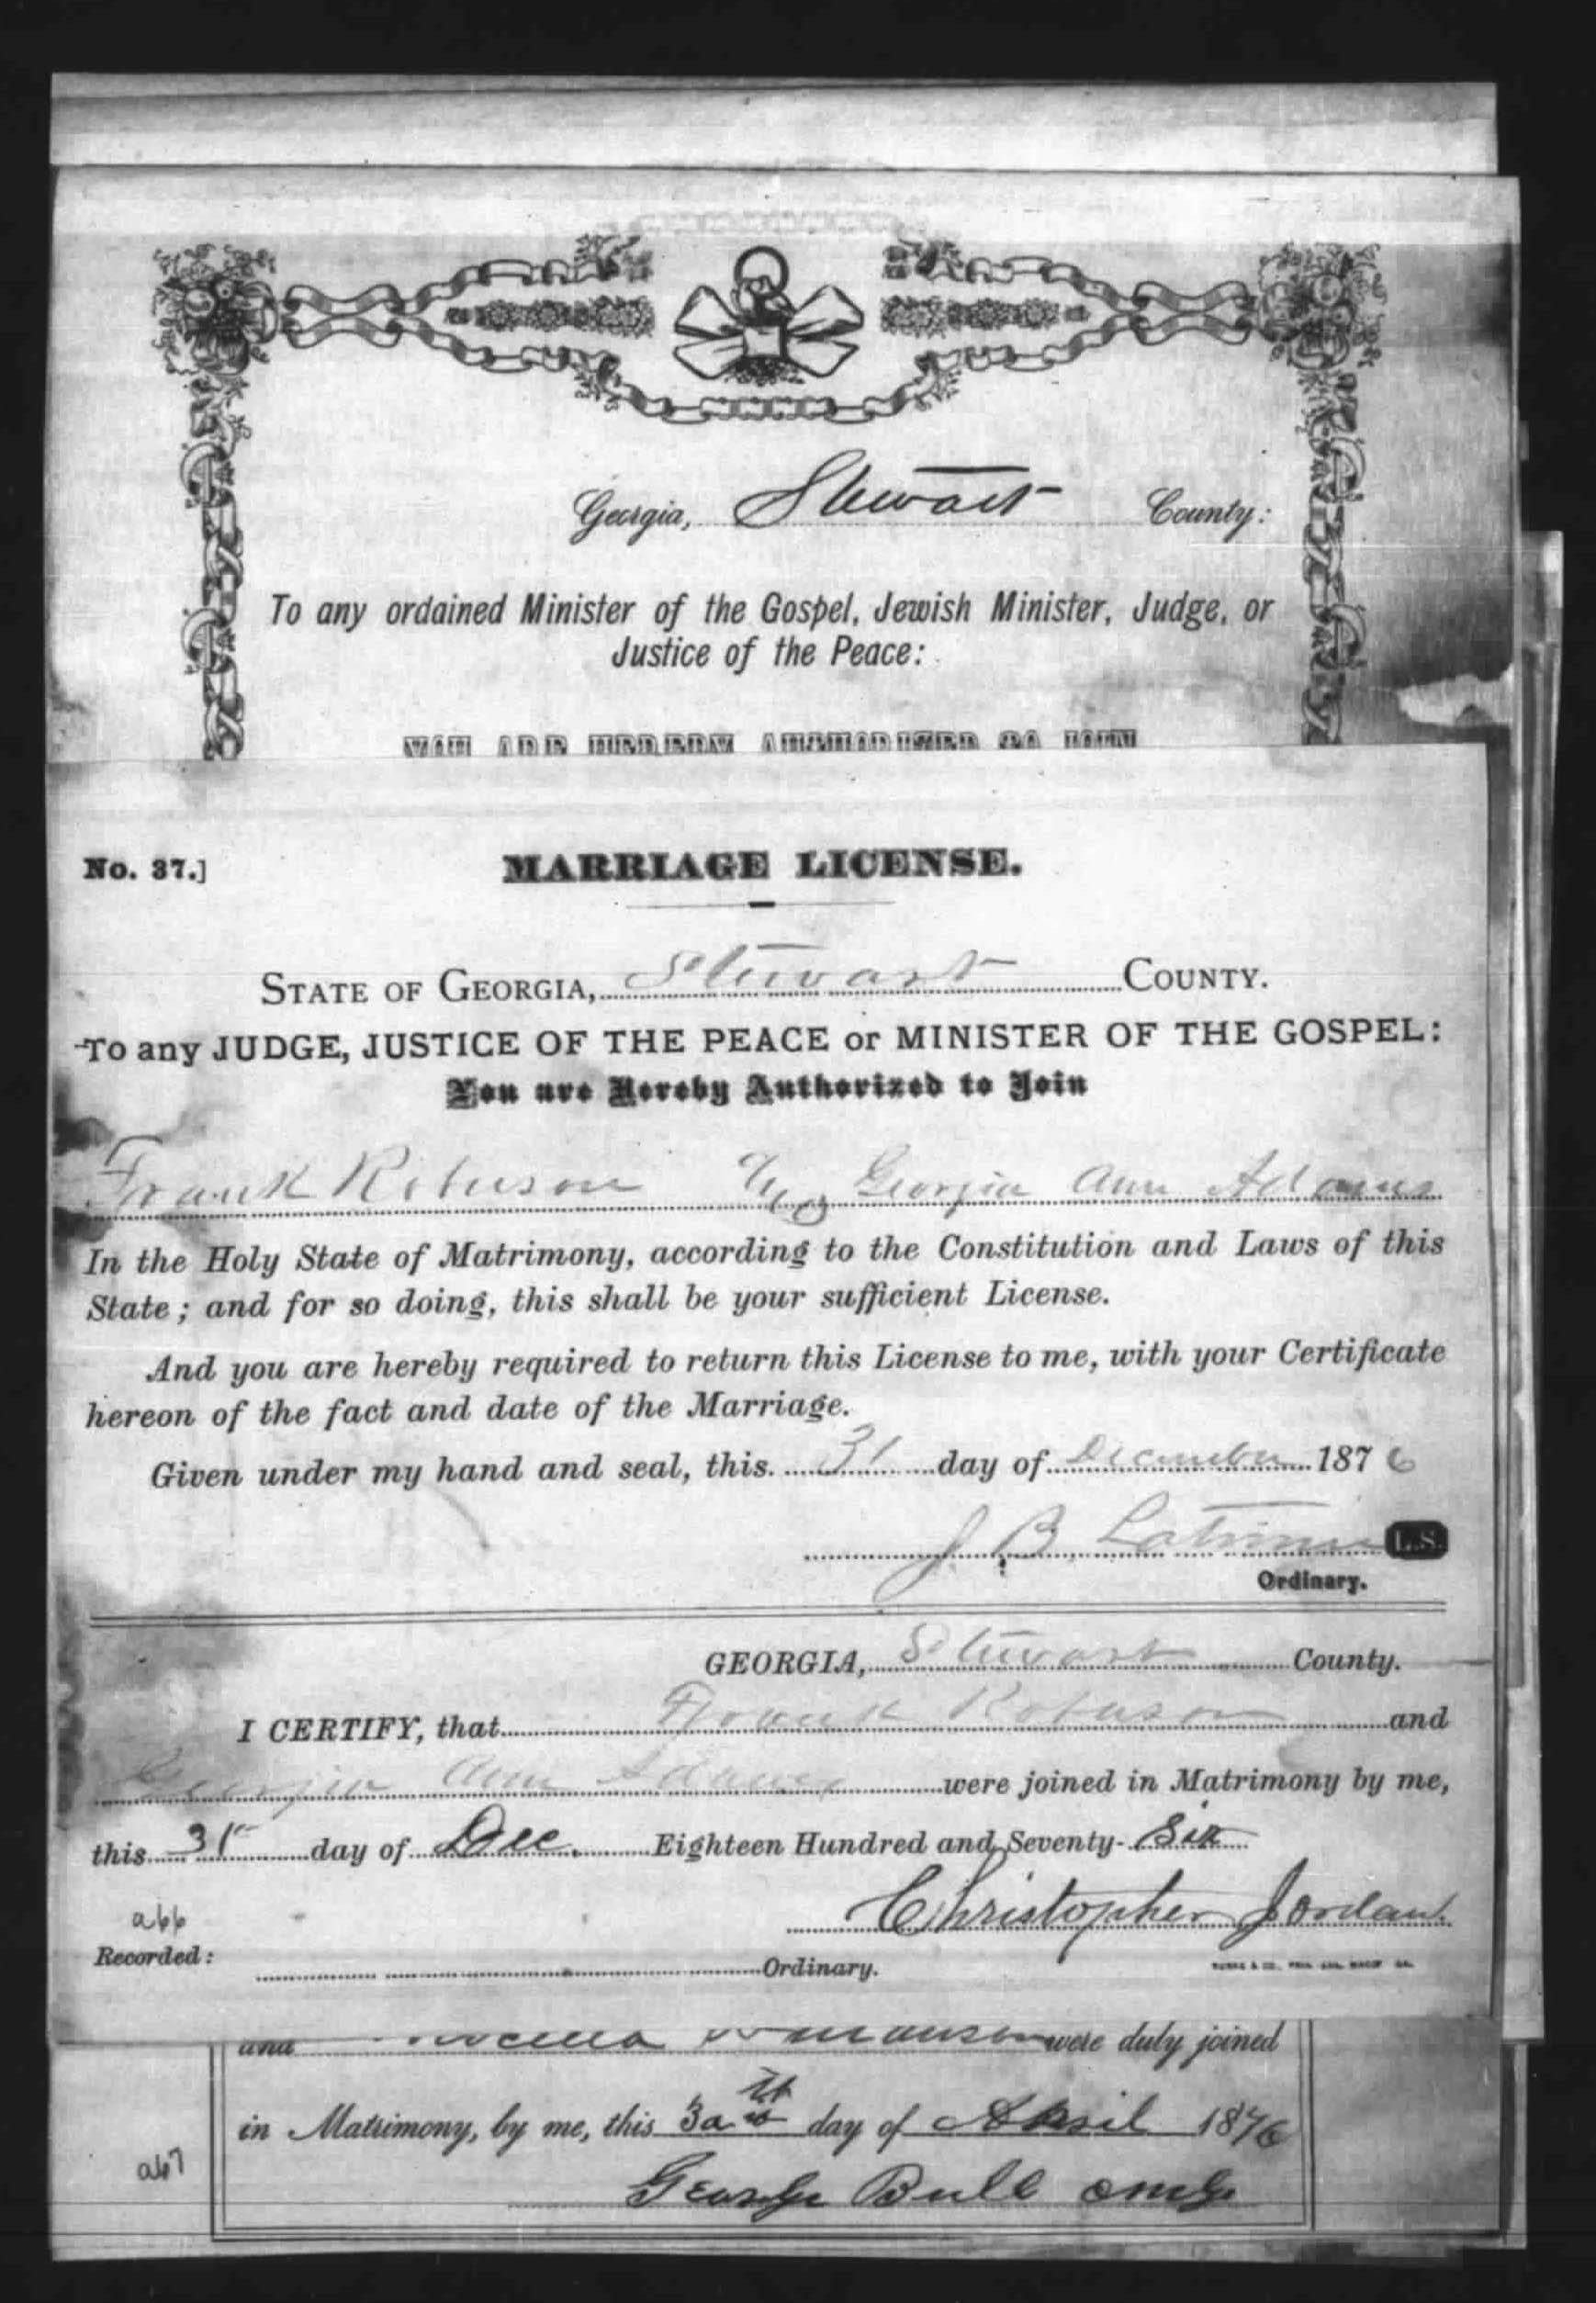 Georgia, Stewart County:
To any ordained Minister of the Gospel, Jewish Minister, Judge, or
Justice of the Peace:
No. 37.]
MARRIAGE LICENSE.
STATE OF GEORGIA, Stewart COUNTY.
To any JUDGE, JUSTICE OF THE PEACE or MINISTER OF THE GOSPEL:
You are Hereby Authorized to Join
Frank Robinson & Georgia Ann Adams
In the Holy State of Matrimony, according to the Constitution and Laws of this
State; and for so doing, this shall be your sufficient License.
And you are hereby required to return this License to me, with your Certificate
hereon of the fact and date of the Marriage.
Given under my hand and seal, this 31 day of December 1876
J. B. Latimer L.S.
Ordinary.
GEORGIA, Stewart County.
I CERTIFY, that Frank Robinson and
Georgia Ann Adams were joined in Matrimony by me,
this 31st day of Dec. Eighteen Hundred and Seventy-Six
Christopher Jordan.
a66
Recorded: Ordinary.
and were duly joined
in Matrimony, by me, this 30th day of April 1876
a67
George Bull omg